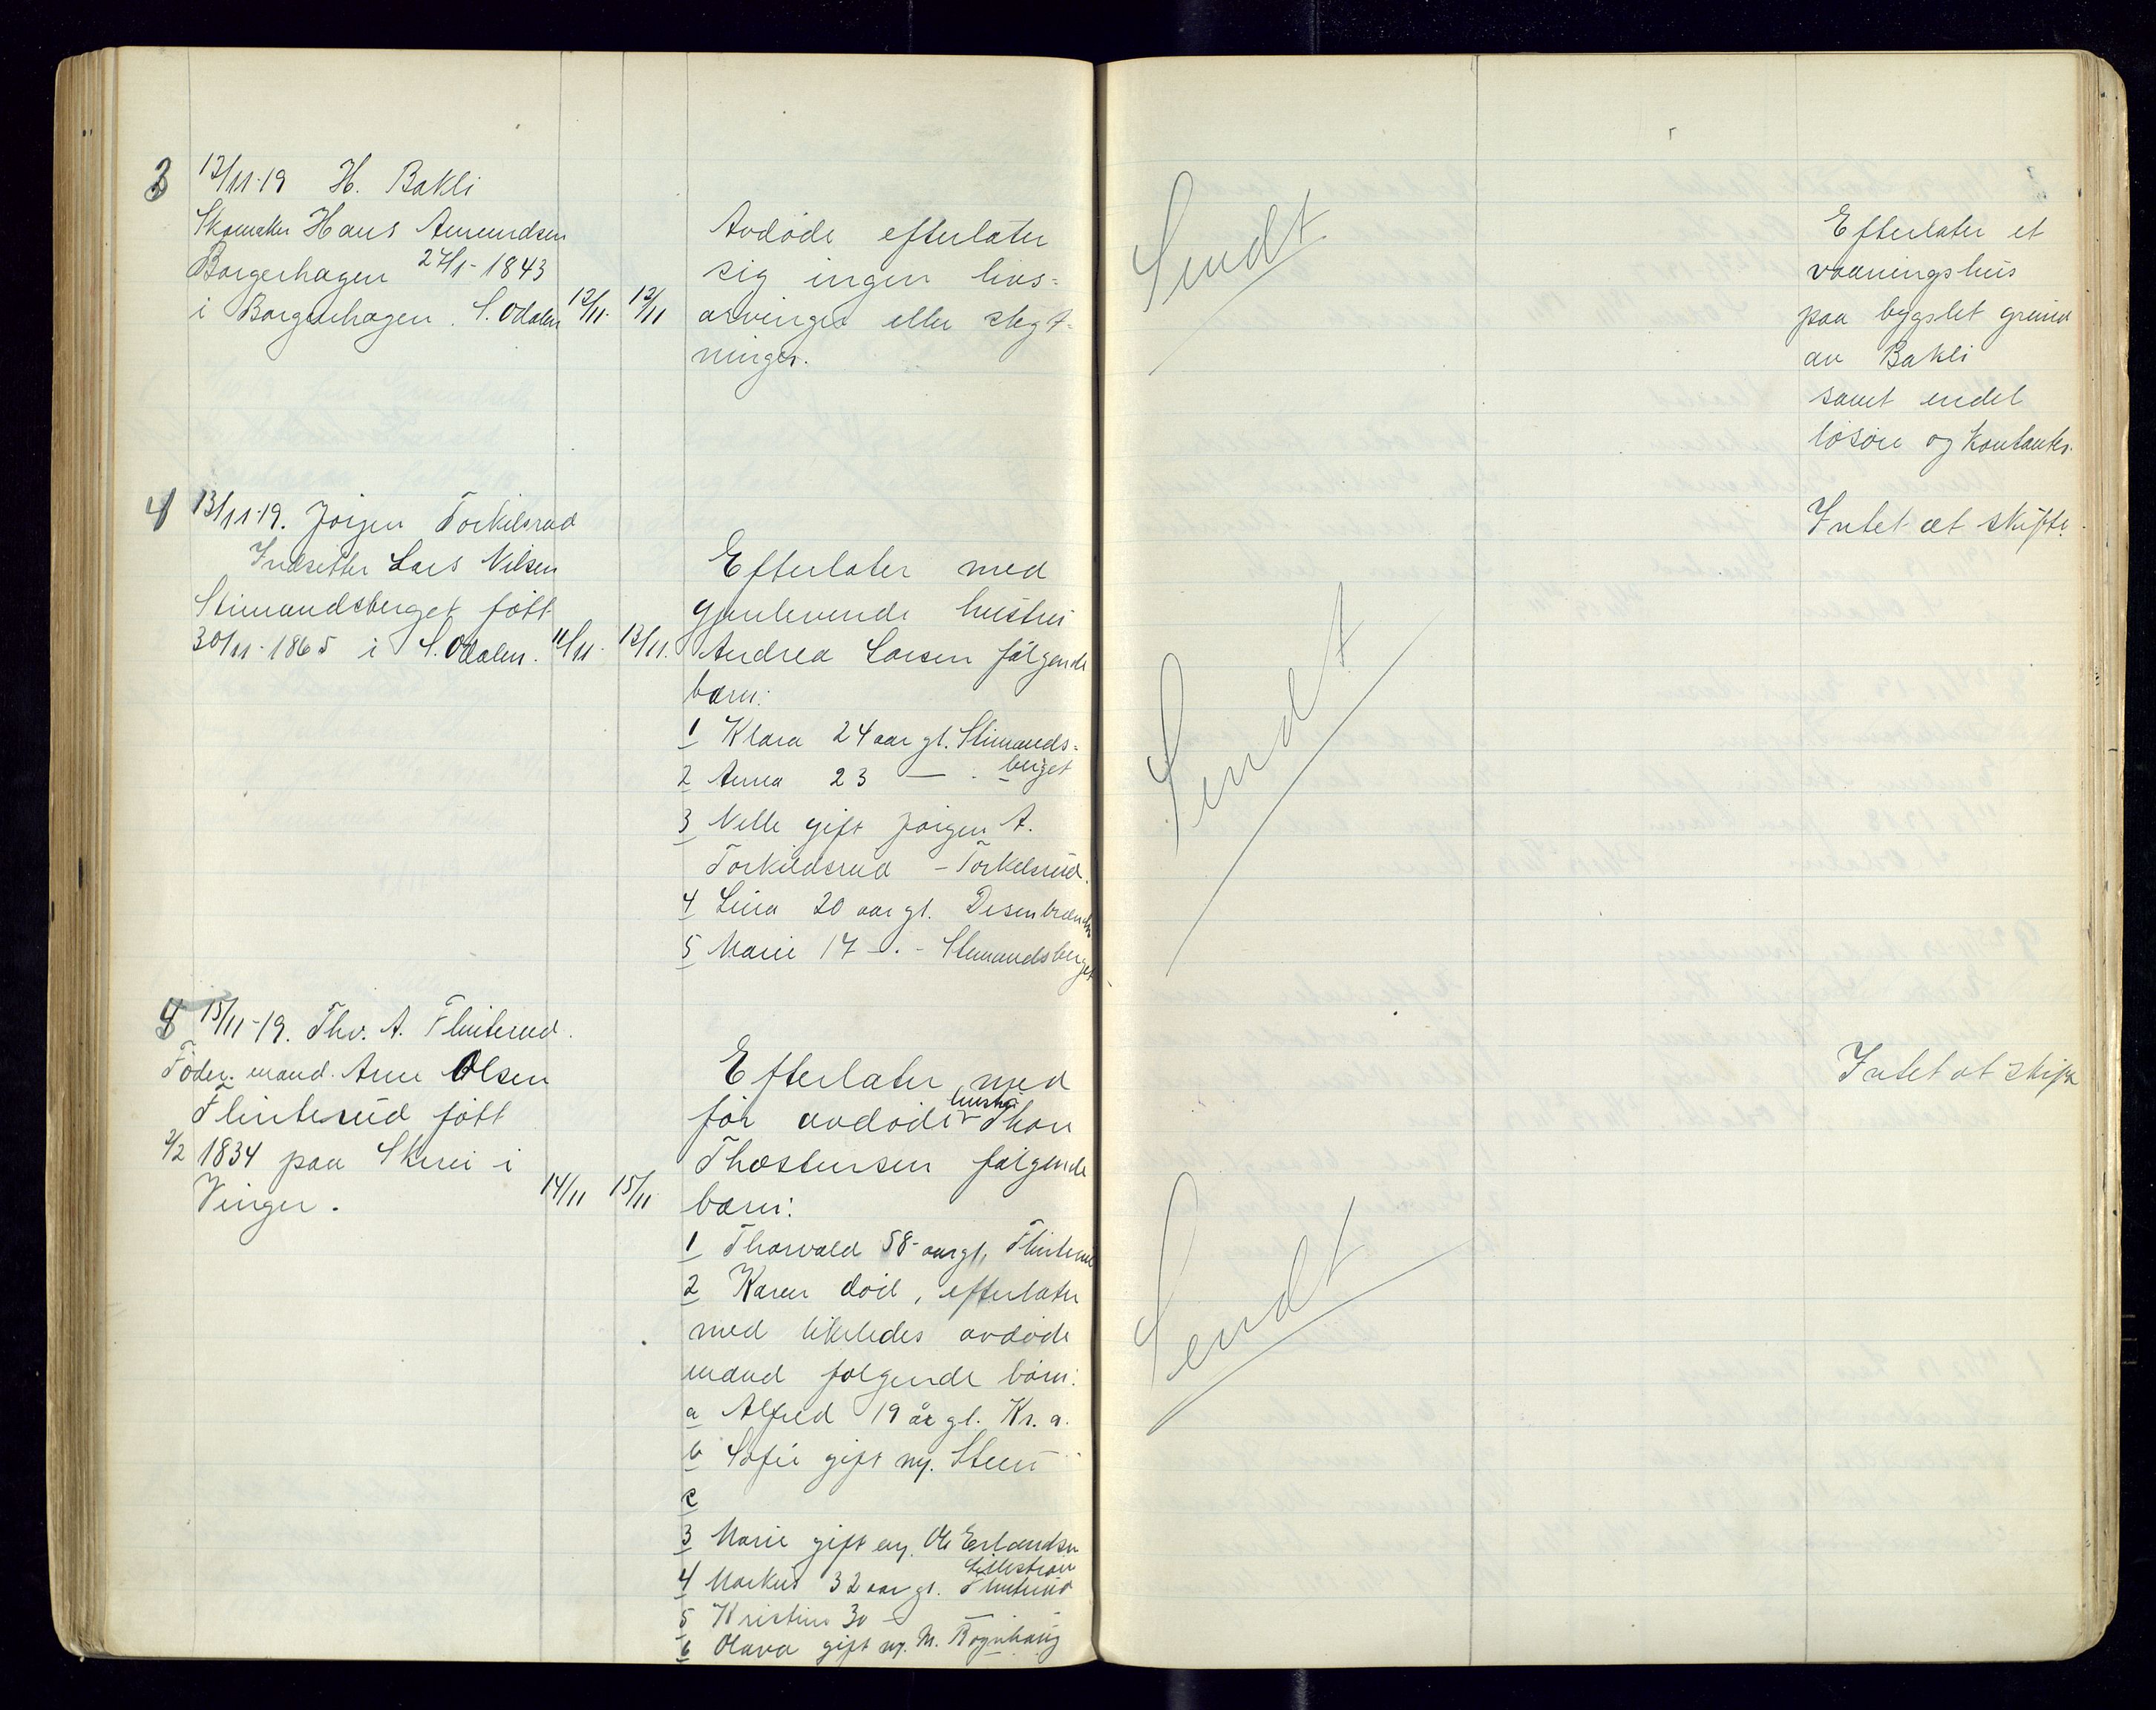 3 12/11-19 H. Bakli
Skomaker Hans Amundsen
Borgerhagen 27/1-1843
i Borgerhagen. S. Odalen 12/11. 12/11
Avdøde efterlater
sig ingen livs-
arvinger eller slegt-
ninger.
Sendt
Efterlater et
vaaningshus
paa bygslet grund
av Bakli
samt endel
løsøre og kontanter.
4 13/11-19. Jørgen Torkilsrud
Indsitter Lars Nilsen
Stimandsberget født
30/11-1865 i S. Odalen. 11/11. 13/11.
Efterlater med
gjenlevende hustru
Andrea Larsen følgende
barn:
1 Klara 24 aar gl. Stimands-
berget
2 Anna 23 — .
3 Nelle gift Jørgen A.
Torkildsrud - Torkelsrud.
4 Lina 20 aar gl.
5 Marie 17 - . - Stimandsberget
Sendt
Intet at skifte.
5 15/11-19. Thv. A. Flinterud.
Føder. mand. Arne Olsen
Flinterud født
2/2 1834 paa Skrei i
Vinger. 14/11 15/11
Efterlater med
før avdøde hustru Thon
Thostensen følgende
barn:
1 Thorvald 58-aar gl, Flinterud
2 Karen død, efterlater
med likeledes avdøde
mand følgende børn:
a Alfred 19 år gl. Kr. a.
b Sofie gift m. Steen
c
3 Marie gift m. Ole Erlandsen
Lillestrøm
4 Markus 32 aar gl. Flinterud
5 Kristine 30 -
6 Olava gift m. M. Rognhaug
Sendt
Intet at skifte